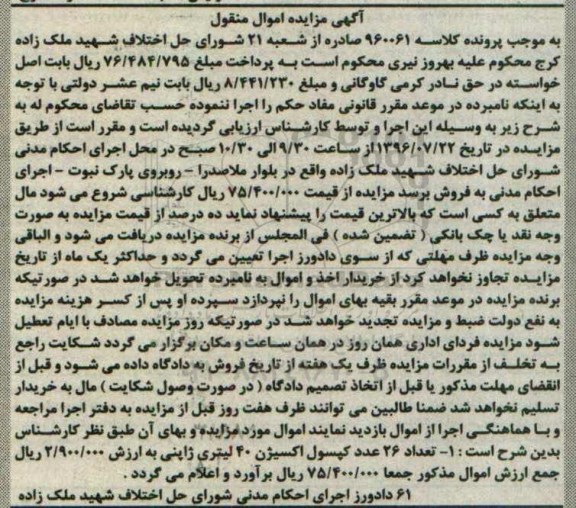 آگهی مزایده اموال منقول
به موجب پرونده کلاسه ۹۶۰۰۶۱ صادره از شعبه ۲۱ شورای حل اختلاف شهید ملک زاده
کرج محکوم علیه بهروز نیری محکوم است به پرداخت مبلغ ۷۶/۴۸۴/۷۹۵ ریال بابت اصل
خواسته در حق نادر کرمی گاوگانی و مبلغ ۸/۴۴۱/۲۳۰ ریال بابت نیم عشر دولتی با توجه
به اینکه نامبرده در موعد مقرر قانونی مفاد حکم را اجرا ننموده حسب تقاضای محکوم له به
شرح زیر به وسیله این اجرا و توسط کارشناس ارزیابی گردیده است و مقرر است از طریق
مزایده در تاریخ ۱۳۹۶/۰۷/۲۲ از ساعت ۹/۳۰ الی ۱۰/۳۰ صبح در محل اجرای احکام مدنی
شورای حل اختلاف شهید ملک زاده واقع در بلوار ملاصدرا - روبروی پارک نبوت - اجرای
احکام مدنی به فروش برسد مزایده از قیمت ۷۵/۴۰۰/۰۰۰ ریال کارشناسی شروع می شود مال
متعلق به کسی است که بالاترین قیمت را پیشنهاد نماید ده درصد از قیمت مزایده به صورت
وجه نقد یا چک بانکی ( تضمین شده ) فی المجلس از برنده مزایده دریافت می شود و الباقی
وجه مزایده ظرف مهلتی که از سوی دادورز اجرا تعیین می گردد و حداکثر یک ماه از تاریخ
مزایده تجاوز نخواهد کرد از خریدار اخذ و اموال به نامبرده تحویل خواهد شد در صورتیکه
برنده مزایده در موعد مقرر بقیه بهای اموال را نپردازد سپرده او پس از کسر هزینه مزایده
به نفع دولت ضبط و مزایده تجدید خواهد شد در صورتیکه روز مزایده مصادف با ایام تعطیل
شود مزایده فردای اداری همان روز در همان ساعت و مکان برگزار می گردد شکایت راجع
به تخلف از مقررات مزایده ظرف یک هفته از تاریخ فروش به دادگاه داده می شود و قبل از
انقضای مهلت مذکور یا قبل از اتخاذ تصمیم دادگاه ( در صورت وصول شکایت ) مال به خریدار
تسلیم نخواهد شد ضمنا طالبین می توانند ظرف هفت روز قبل از مزایده به دفتر اجرا مراجعه
و با هماهنگی اجرا از اموال بازدید نمایند اموال مورد مزایده و بهای آن طبق نظر کارشناس
بدین شرح است : ۱- تعداد ۲۶ عدد کپسول اکسیژن ۴۰ لیتری ژاپنی به ارزش ۲/۹۰۰/۰۰۰ ریال
جمع ارزش اموال مذکور جمعا ۷۵/۴۰۰/۰۰۰ ریال برآورد و اعلام می گردد .
۶۱ دادورز اجرای احکام مدنی شورای حل اختلاف شهید ملک زاده